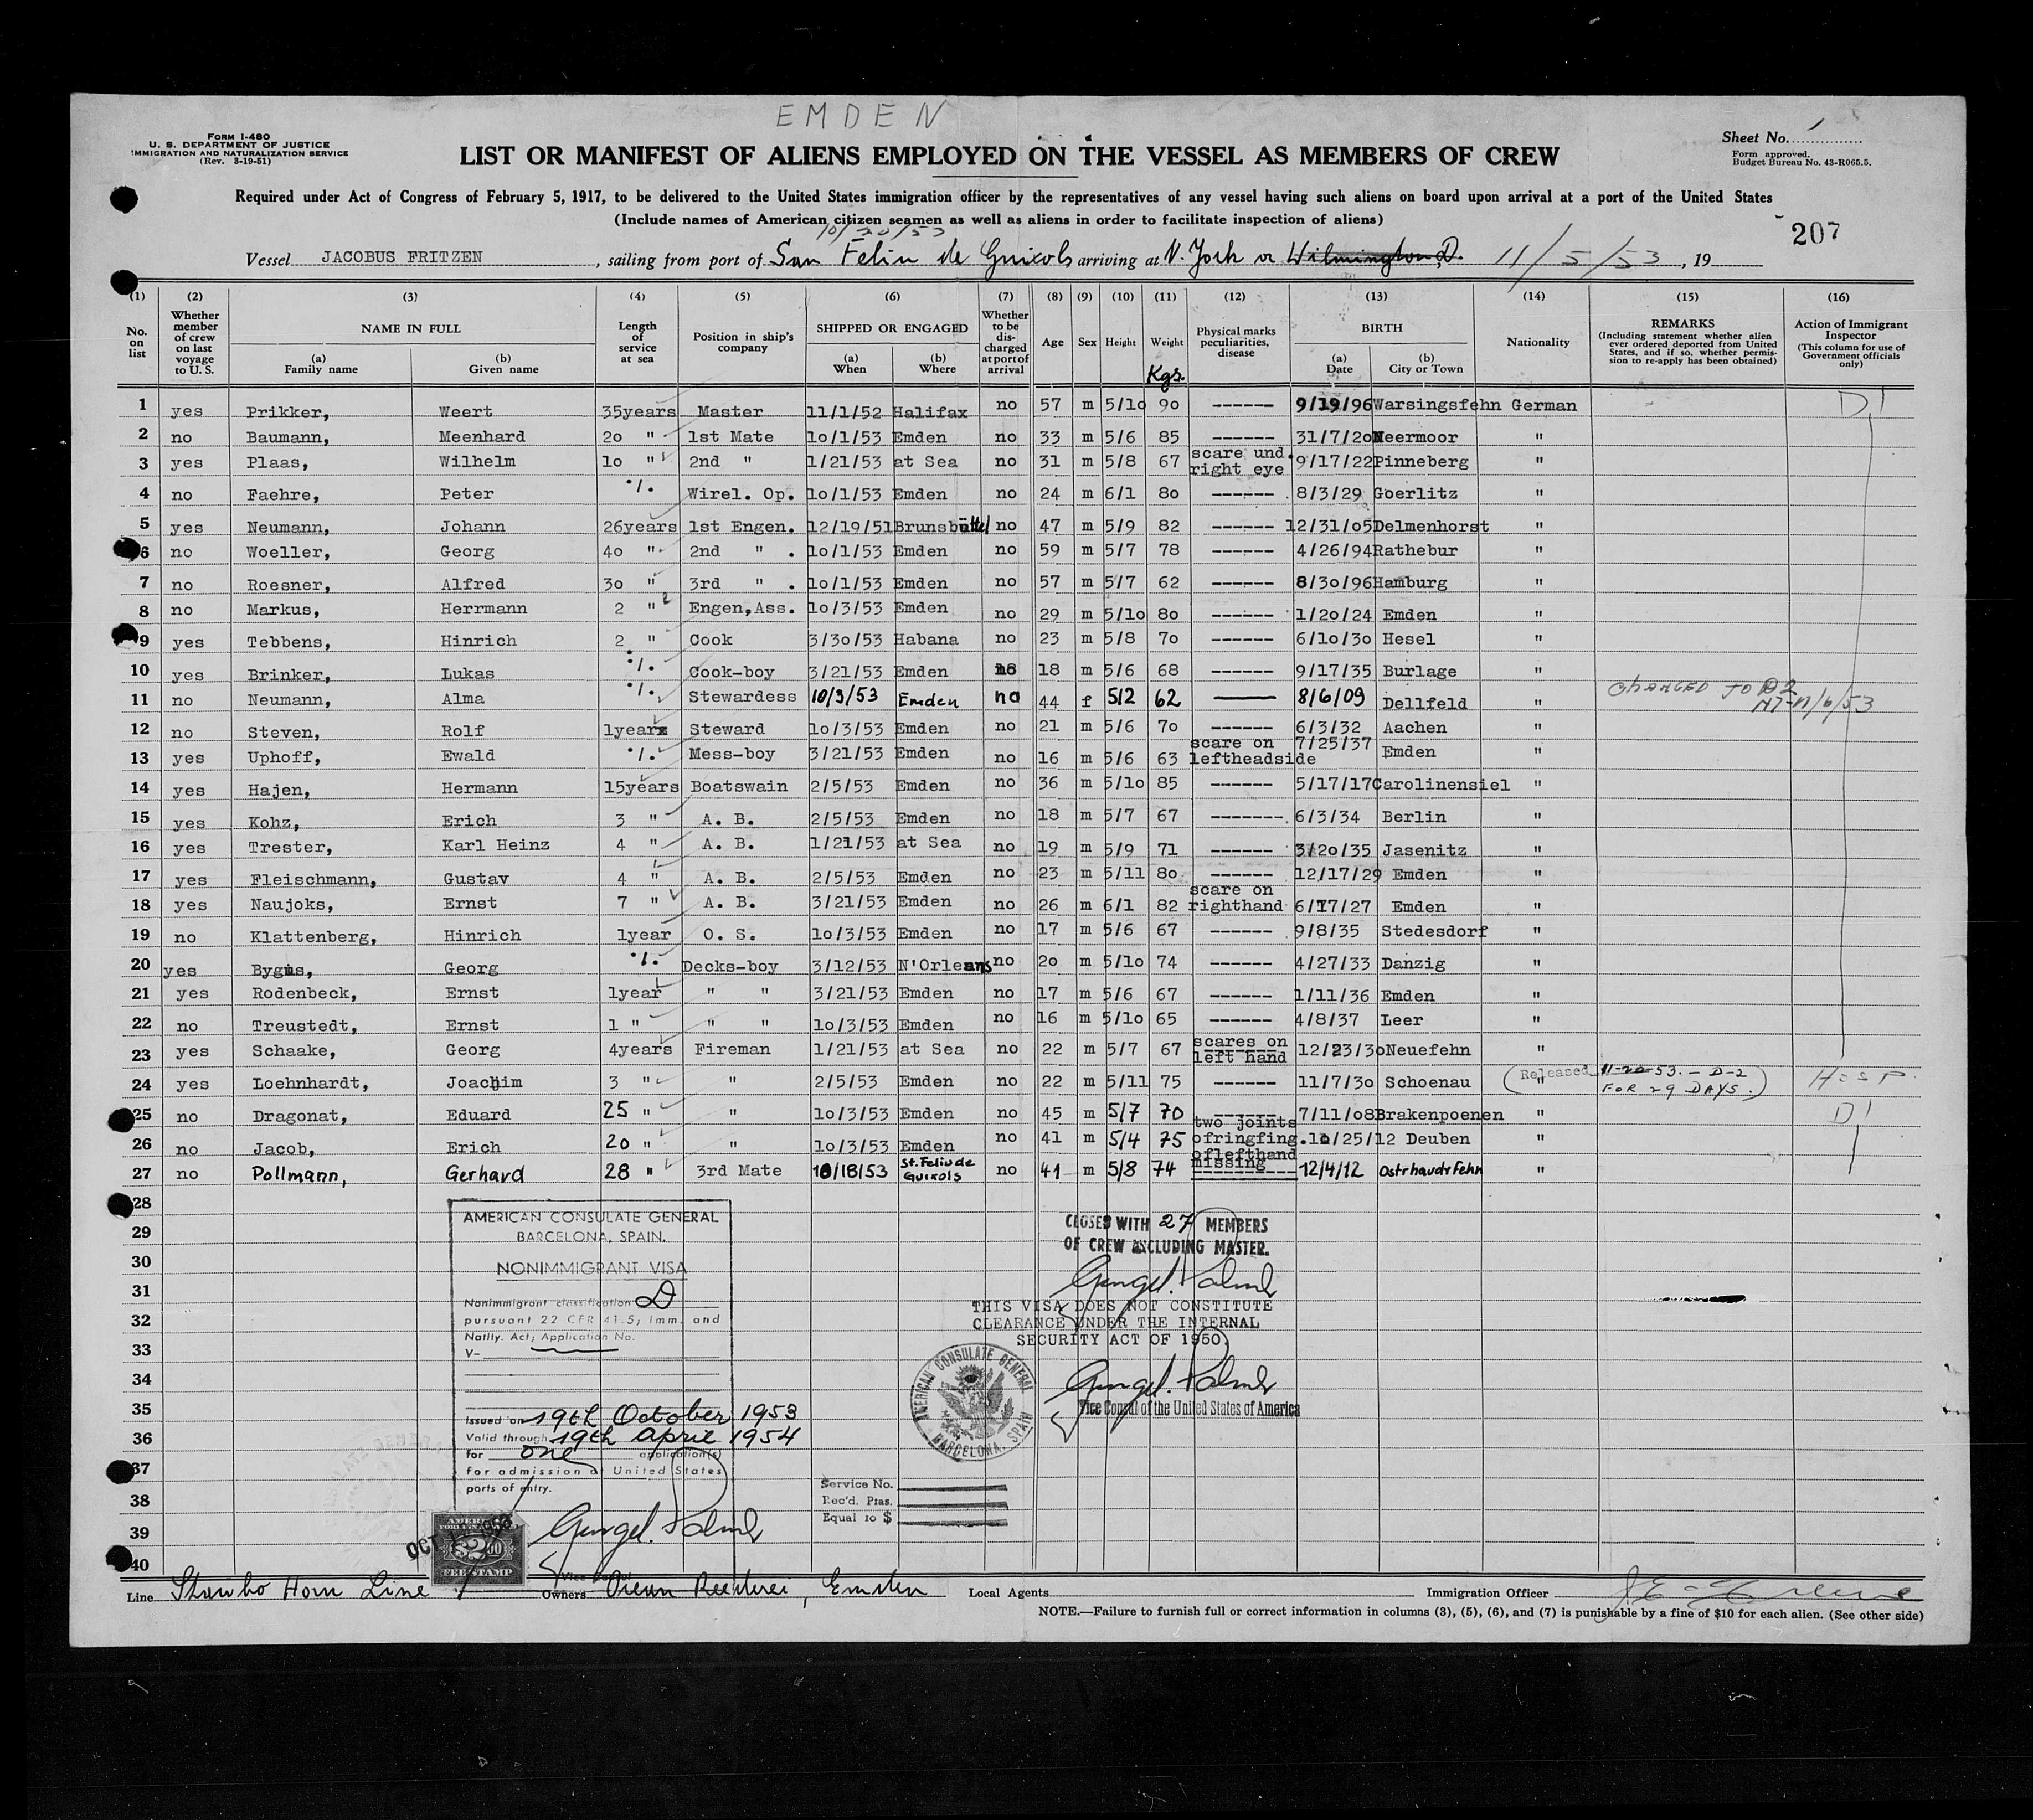 EMDEN
FORM I-480
U. S. DEPARTMENT OF JUSTICE
IMMIGRATION AND NATURALIZATION SERVICE
(Rev. 3-19-51)
Sheet No. 1
Form approved.
Budget Bureau No. 43-R065.5.
LIST OR MANIFEST OF ALIENS EMPLOYED ON THE VESSEL AS MEMBERS OF CREW
Required under Act of Congress of February 5, 1917, to be delivered to the United States immigration officer by the representatives of any vessel having such aliens on board upon arrival at a port of the United States
(Include names of American citizen seamen as well as aliens in order to facilitate inspection of aliens)
207
10/20/53
Vessel JACOBUS FRITZEN, sailing from port of San Feliu de Guixols arriving at N. York or Wilmington, D. 11/5/53, 19
(1) (2) (3) (4) (5) (6) (7) (8) (9) (10) (11) (12) (13) (14) (15) (16)
No. on list
Whether member of crew on last voyage to U. S.
NAME IN FULL
(a) Family name
(b) Given name
Length of service at sea
Position in ship's company
SHIPPED OR ENGAGED
(a) When
(b) Where
Whether to be discharged at port of arrival
Age
Sex
Height
Weight
Kgs.
Physical marks peculiarities, disease
BIRTH
(a) Date
(b) City or Town
Nationality
REMARKS
(Including statement whether alien ever ordered deported from United States, and if so, whether permission to re-apply has been obtained)
Action of Immigrant Inspector
(This column for use of Government officials only)
1 yes Prikker, Weert 35years Master 11/1/52 Halifax no 57 m 5/10 90 ------ 9/19/96 Warsingsfehn German D1
2 no Baumann, Meenhard 20 " 1st Mate 10/1/53 Emden no 33 m 5/6 85 ------ 31/7/20 Neermoor "
3 yes Plaas, Wilhelm 10 " 2nd " 1/21/53 at Sea no 31 m 5/8 67 scare und. right eye 9/17/22 Pinneberg "
4 no Faehre, Peter ·/. Wirel. Op. 10/1/53 Emden no 24 m 6/1 80 ------ 8/3/29 Goerlitz "
5 yes Neumann, Johann 26years 1st Engen. 12/19/51 Brunsbüttel no 47 m 5/9 82 ------ 12/31/05 Delmenhorst "
6 no Woeller, Georg 40 " 2nd " . 10/1/53 Emden no 59 m 5/7 78 ------ 4/26/94 Rathebur "
7 no Roesner, Alfred 30 " 3rd " . 10/1/53 Emden no 57 m 5/7 62 ------ 8/30/96 Hamburg "
8 no Markus, Herrmann 2 " Engen,Ass. 10/3/53 Emden no 29 m 5/10 80 ------ 1/20/24 Emden "
9 yes Tebbens, Hinrich 2 " Cook 3/30/53 Habana no 23 m 5/8 70 ------ 6/10/30 Hesel "
10 yes Brinker, Lukas ·/. Cook-boy 3/21/53 Emden no 18 m 5/6 68 ------ 9/17/35 Burlage "
11 no Neumann, Alma ·/. Stewardess 10/3/53 Emden no 44 f 5/2 62 —— 8/6/09 Dellfeld " CHANGED TO D2 11/6/53
12 no Steven, Rolf 1year Steward 10/3/53 Emden no 21 m 5/6 70 ------ 6/3/32 Aachen "
13 yes Uphoff, Ewald ·/. Mess-boy 3/21/53 Emden no 16 m 5/6 63 scare on leftheadside 7/25/37 Emden "
14 yes Hajen, Hermann 15years Boatswain 2/5/53 Emden no 36 m 5/10 85 ------ 5/17/17 Carolinensiel "
15 yes Kohz, Erich 3 " A. B. 2/5/53 Emden no 18 m 5/7 67 ------- 6/3/34 Berlin "
16 yes Trester, Karl Heinz 4 " A. B. 1/21/53 at Sea no 19 m 5/9 71 ------ 3/20/35 Jasenitz "
17 yes Fleischmann, Gustav 4 " A. B. 2/5/53 Emden no 23 m 5/11 80 ------ 12/17/29 Emden "
18 yes Naujoks, Ernst 7 " A. B. 3/21/53 Emden no 26 m 6/1 82 scare on righthand 6/17/27 Emden "
19 no Klattenberg, Hinrich 1year O. S. 10/3/53 Emden no 17 m 5/6 67 ------ 9/8/35 Stedesdorf "
20 yes Bygus, Georg ·/. Decks-boy 3/12/53 N'Orleans no 20 m 5/10 74 ------ 4/27/33 Danzig "
21 yes Rodenbeck, Ernst 1year " " 3/21/53 Emden no 17 m 5/6 67 ------ 1/11/36 Emden "
22 no Treustedt, Ernst 1 " " " 10/3/53 Emden no 16 m 5/10 65 ------ 4/8/37 Leer "
23 yes Schaake, Georg 4years Fireman 1/21/53 at Sea no 22 m 5/7 67 scares on left hand 12/23/30 Neuefehn "
24 yes Loehnhardt, Joachim 3 " " 2/5/53 Emden no 22 m 5/11 75 ------ 11/7/30 Schoenau " (Released 11-20-53. - D-2 FOR 29 DAYS.) HOSP.
25 no Dragonat, Eduard 25 " " 10/3/53 Emden no 45 m 5/7 70 ------ 7/11/08 Brakenpoenen " D1
26 no Jacob, Erich 20 " " 10/3/53 Emden no 41 m 5/4 75 two joints ofringfing. oflefthand missing 10/25/12 Deuben "
27 no Pollmann, Gerhard 28 " 3rd Mate 10/18/53 St. Feliu de Guixols no 41 m 5/8 74 ------ 12/4/12 Ostrhauderfehn "
28
29
30
31
32
33
34
35
36
37
38
39
40
AMERICAN CONSULATE GENERAL
BARCELONA, SPAIN.
NONIMMIGRANT VISA
Nonimmigrant classification D
pursuant 22 CFR 41.5; Imm. and
Natlty. Act; Application No.
V-
Issued on 19th October 1953
Valid through 19th April 1954
for one application(s)
for admission at United States
ports of entry.
Vice Consul
OCT 19 1953
AMERICAN
FOREIGN SERVICE
$2.00
FEE STAMP
CLOSED WITH 27 MEMBERS
OF CREW EXCLUDING MASTER.
THIS VISA DOES NOT CONSTITUTE
CLEARANCE UNDER THE INTERNAL
SECURITY ACT OF 1950.
Vice Consul of the United States of America
AMERICAN CONSULATE GENERAL
BARCELONA, SPAIN
Service No.
Rec'd. Ptas.
Equal to $
Line Stawbo Horn Line Owners Ocean Reederei, Emden Local Agents Immigration Officer
NOTE.—Failure to furnish full or correct information in columns (3), (5), (6), and (7) is punishable by a fine of $10 for each alien. (See other side)